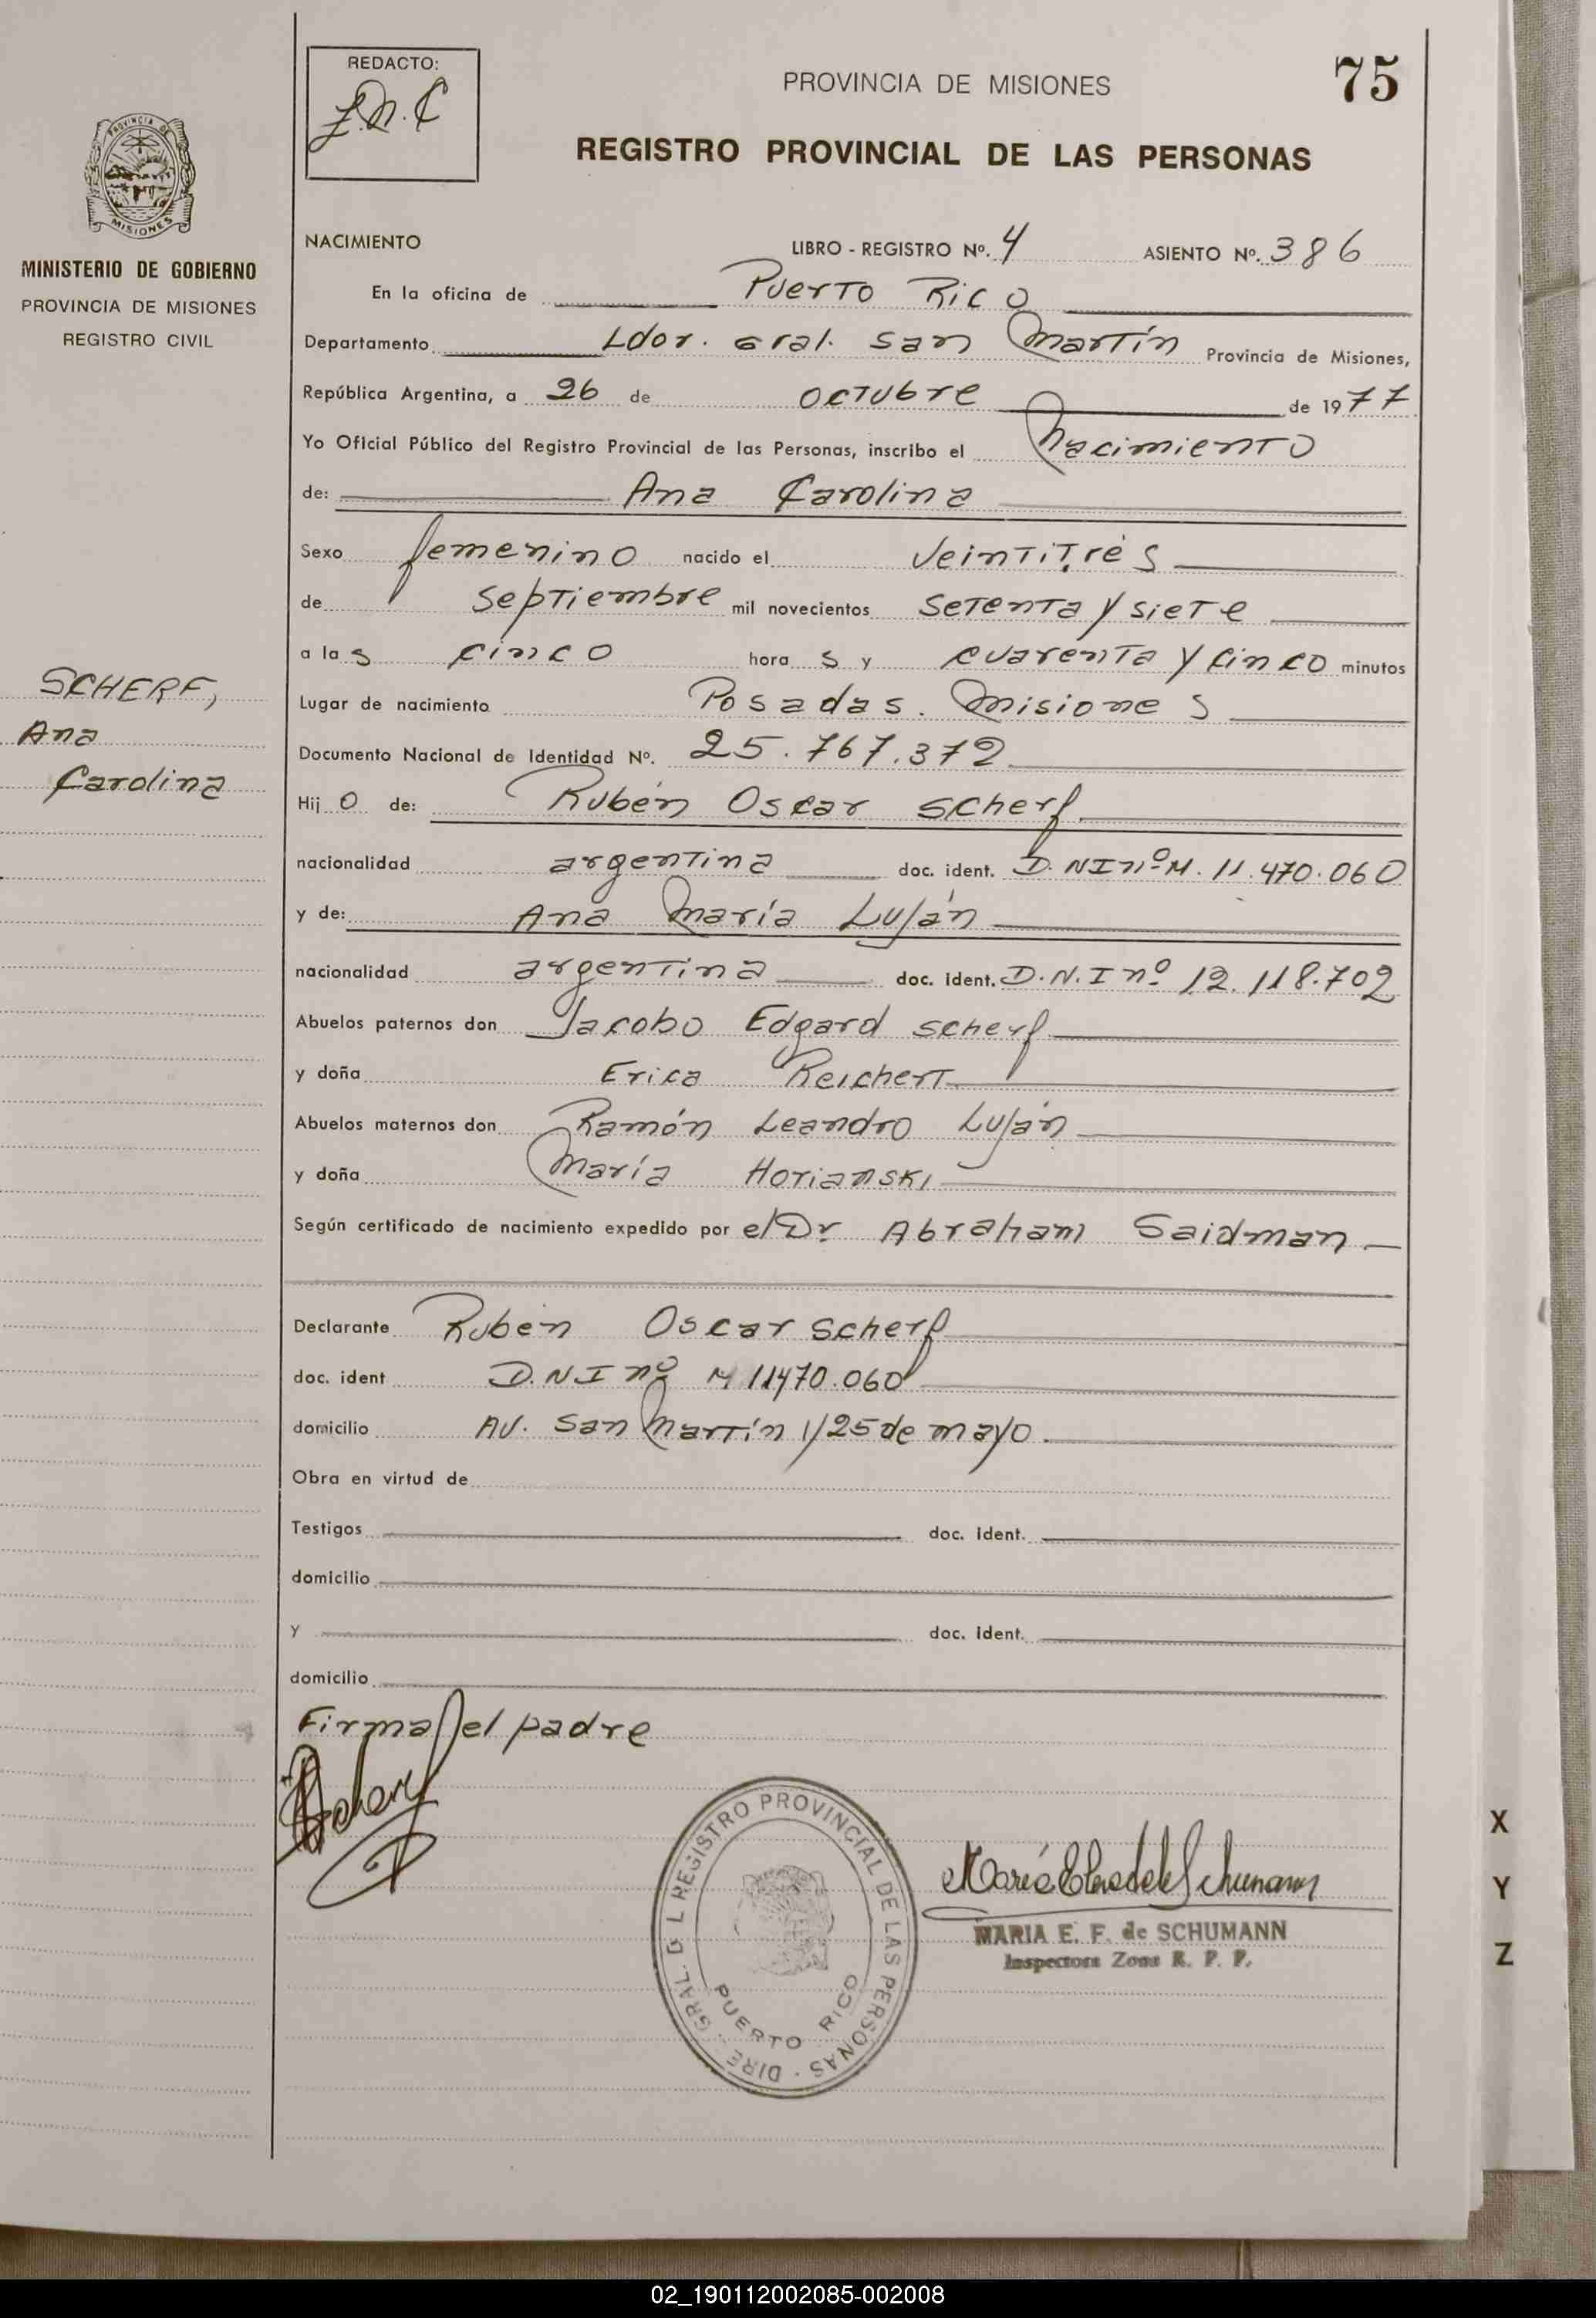 REDACTO:
PROVINCIA DE MISIONES
75
REGISTRO PROVINCIAL DE LAS PERSONAS
PROVINCIA DE
MISIONES
MINISTERIO DE GOBIERNO
PROVINCIA DE MISIONES
REGISTRO CIVIL
SCHERF,
Ana
Carolina
NACIMIENTO LIBRO - REGISTRO Nº. 4 ASIENTO Nº. 386
En la oficina de Puerto Rico
Departamento Ldor. Gral. San Martín Provincia de Misiones,
República Argentina, a 26 de octubre de 1977
Yo Oficial Público del Registro Provincial de las Personas, inscribo el Nacimiento
de: Ana Carolina
Sexo femenino nacido el veintitrés
de septiembre mil novecientos setenta y siete
a las cinco horas y cuarenta y cinco minutos
Lugar de nacimiento Posadas. Misiones
Documento Nacional de Identidad Nº. 25.767.372
Hijo de: Rubén Oscar Scherf
nacionalidad argentina doc. ident. D.NI nº M. 11.470.060
y de: Ana María Luján
nacionalidad argentina doc. ident. D.N.I nº 12.118.702
Abuelos paternos don Jacobo Edgard Scherf
y doña Erica Reichert
Abuelos maternos don Ramón Leandro Luján
y doña María Horianski
Según certificado de nacimiento expedido por el Dr Abraham Saidman
Declarante Rubén Oscar Scherf
doc. ident D.NI nº M 11470.060
domicilio Av. San Martín y 25 de mayo.
Obra en virtud de
Testigos doc. ident.
domicilio
y doc. ident.
domicilio
Firma del padre
Scherf
DIRE. GRAL. D L REGISTRO PROVINCIAL DE LAS PERSONAS
PUERTO RICO
MARIA E. F. de SCHUMANN
Inspectora Zona R. P. P.
X
Y
Z
02_190112002085-002008